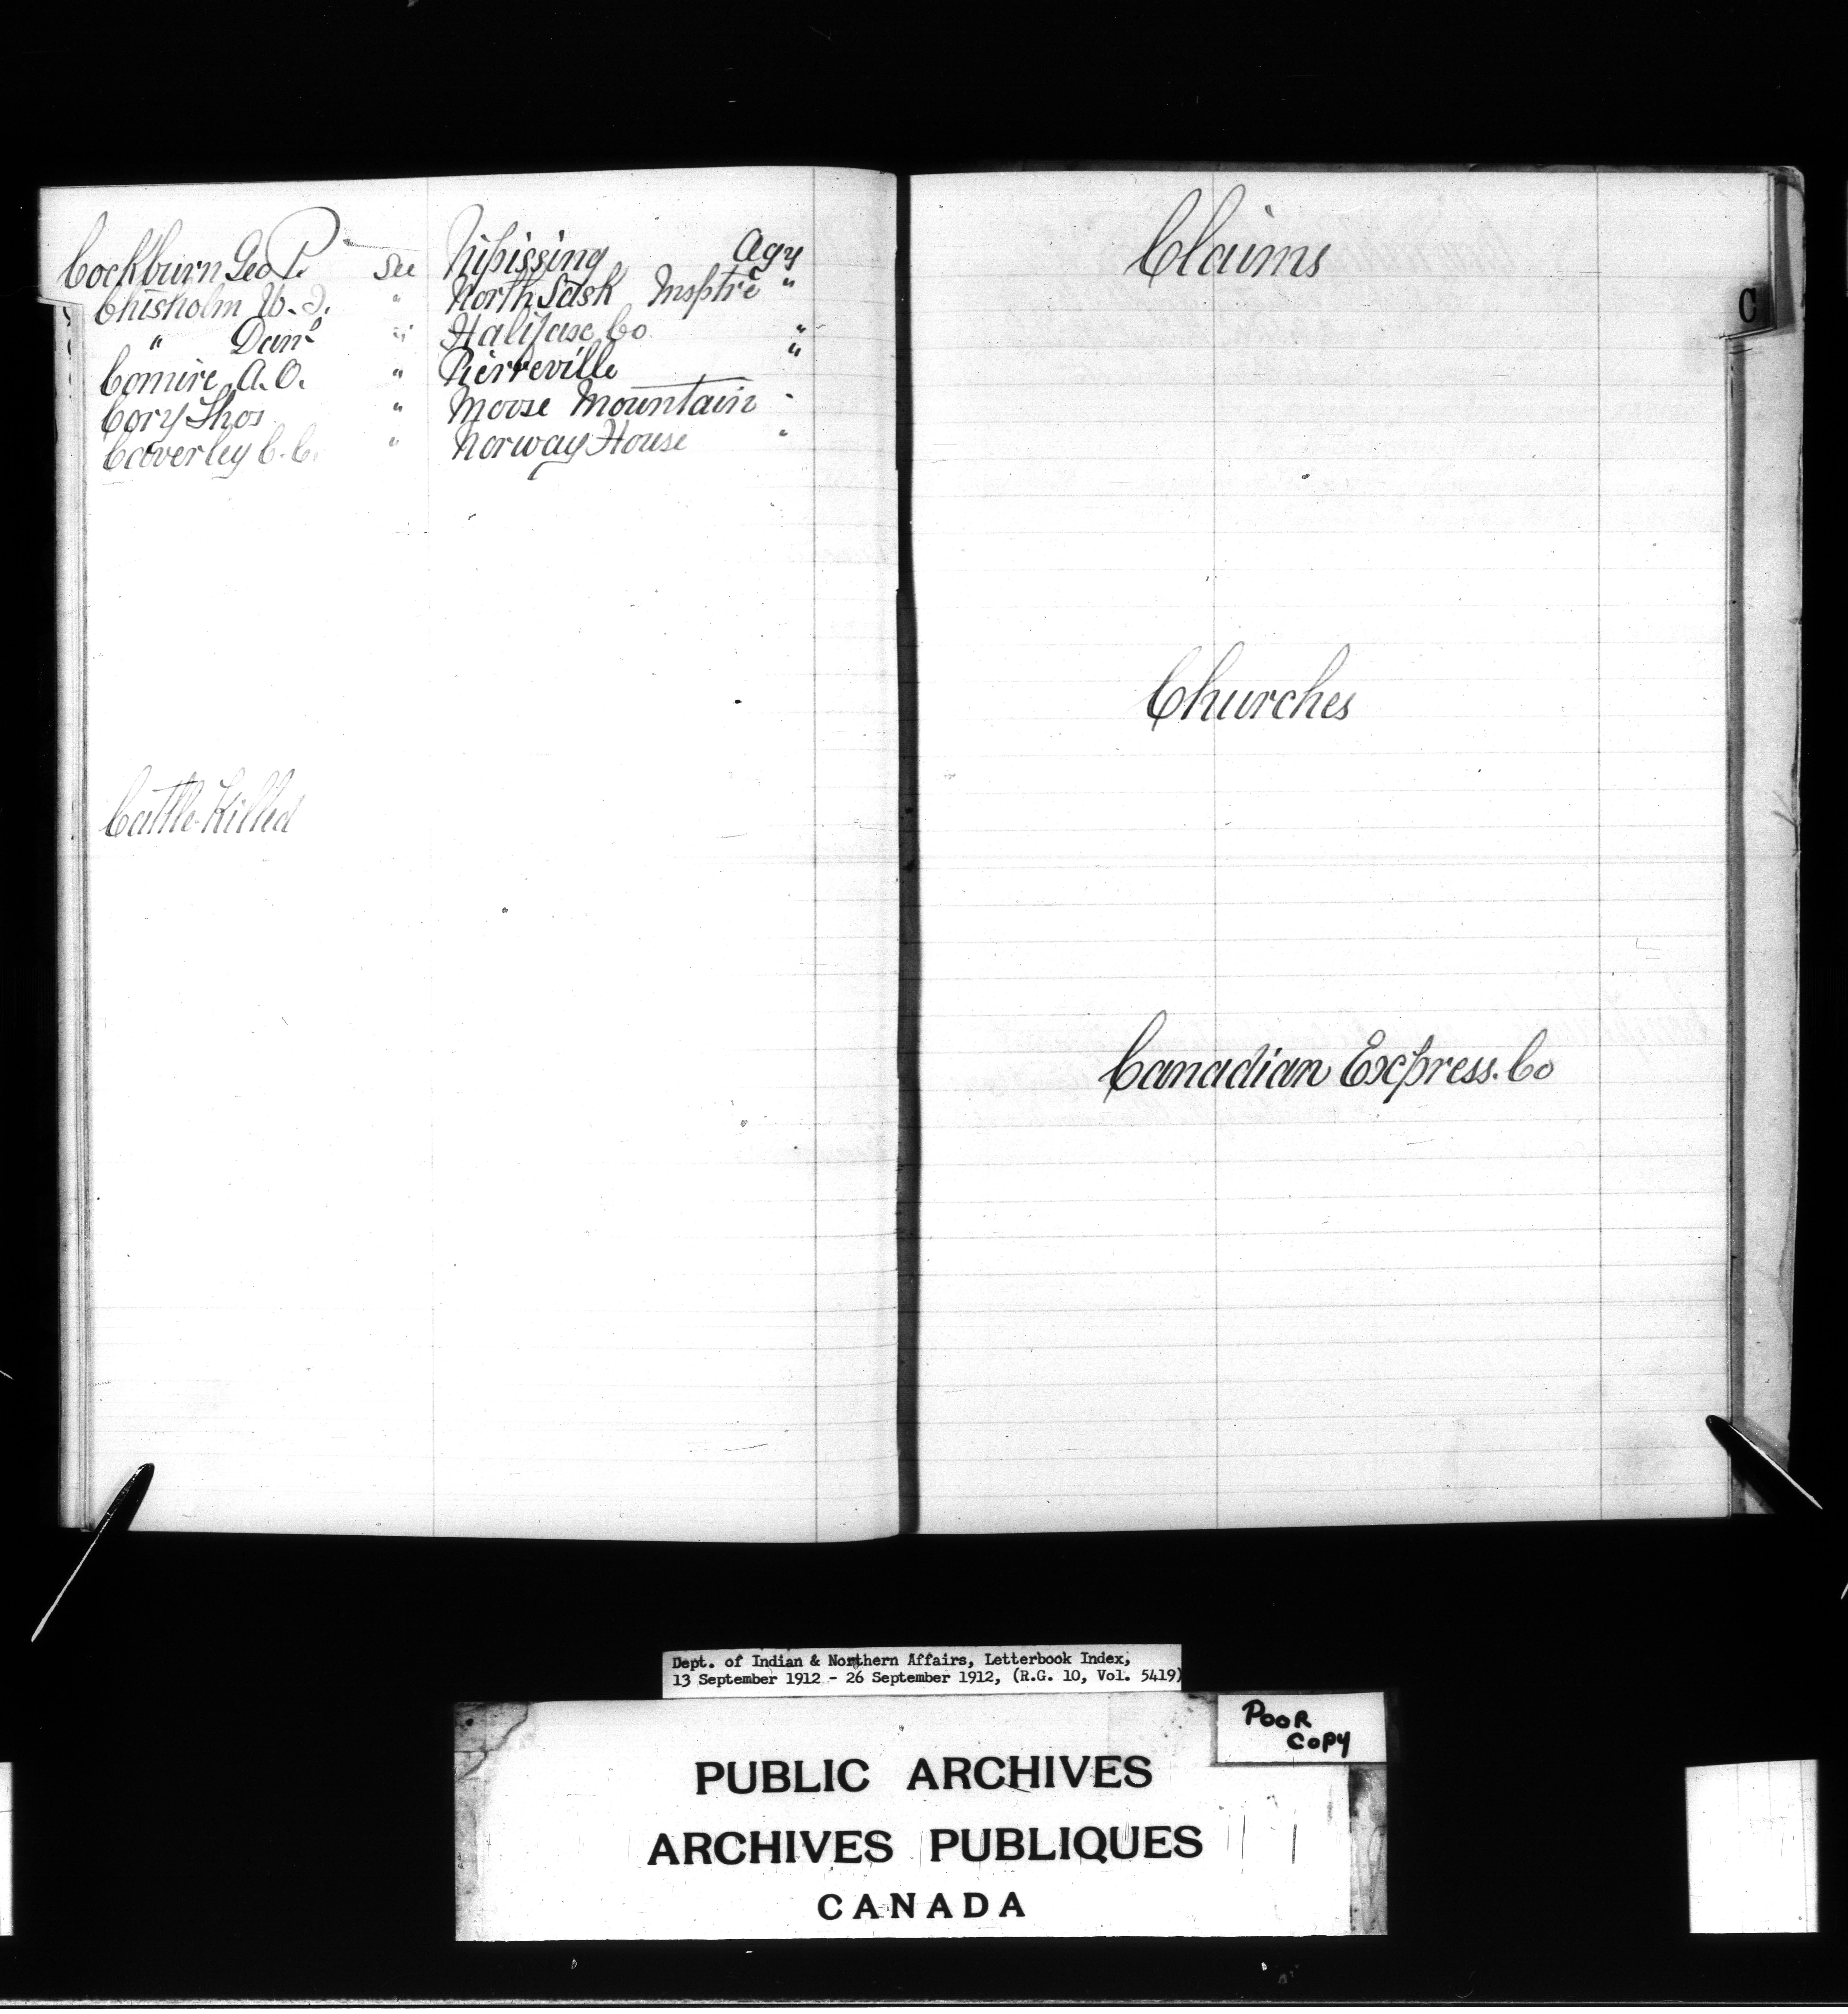 Cockburn Geo P. See Nipissing Agy
Chisholm W. J. " North Sask Insptre "
" Danl " Halifax Co "
Comire A. O. " Pierreville "
Cory Thos " Moose Mountain "
Coverley C. C. " Norway House "
Cattle Killed
Claims
C
Churches
Canadian Express. Co
Dept. of Indian & Northern Affairs, Letterbook Index,
13 September 1912 - 26 September 1912, (R.G. 10, Vol. 5419)
POOR
COPY
PUBLIC ARCHIVES
ARCHIVES PUBLIQUES
CANADA